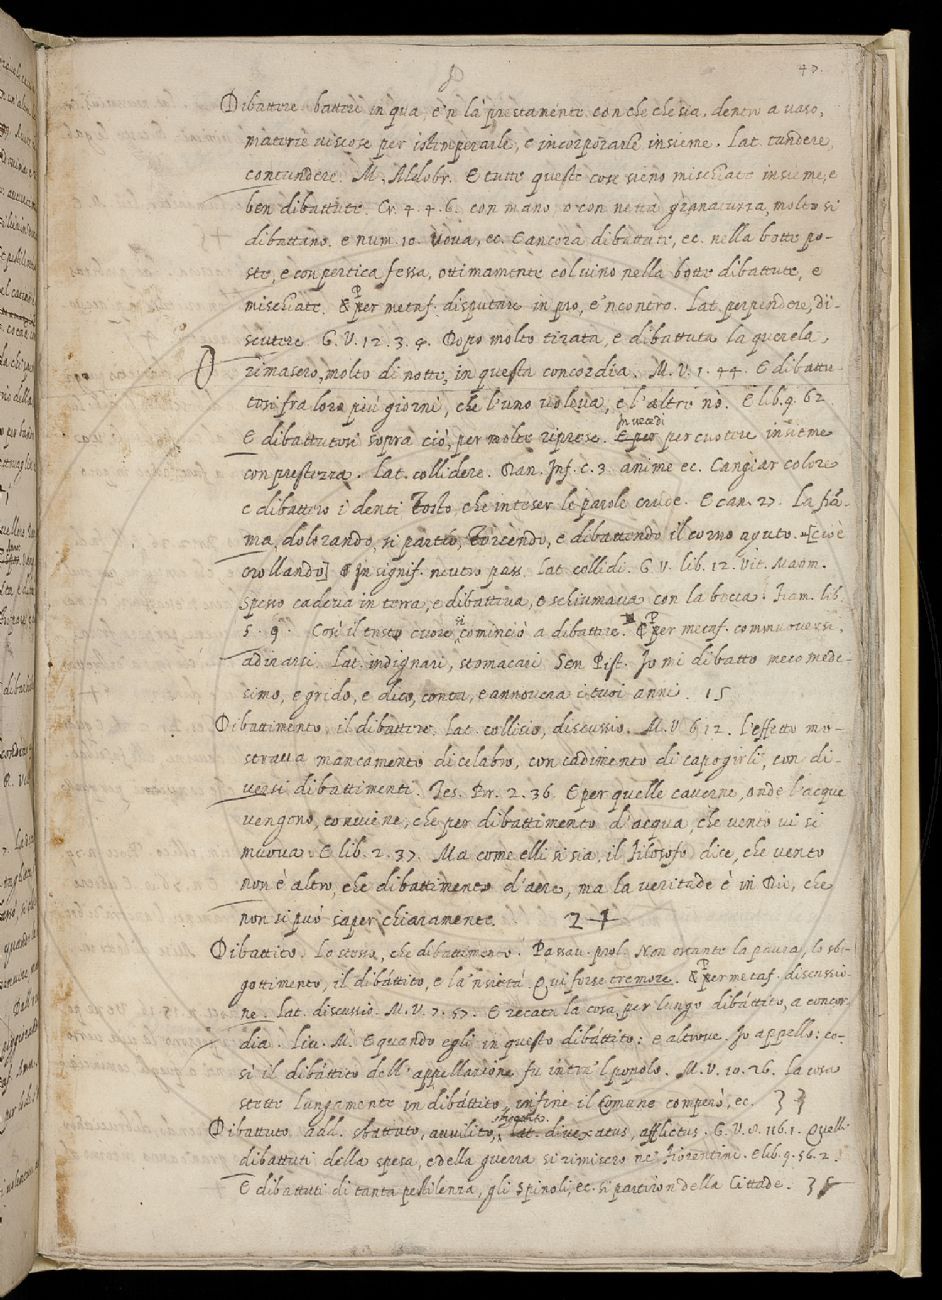 47.
D
Dibattere. battere in qua, e 'n là prestamente con che che sia, dentro a vaso,
materie viscose per istemperarle, e incorporarle insieme. Lat. tundere,
contundere. M. Aldobr. E tutte queste cose sieno mischiate insieme, e
ben dibattute. Cr. 4. 4. 6. con mano, o con netta granatuzza, molto si
dibattano. e num. 10. Uova, ec. E ancora dibattute, ec. nella botte po-
ste, e con pertica fessa, ottimamente col vino nella botte dibattute, e
mischiate. & P per metaf. disputare in pro, e 'ncontro. Lat. perpendere, di-
scutere G. V. 12. 3. 9. Dopo molto tirata, e dibattuta la querela,
rimasero, molto di notte, in questa concordia. M. V. 1. 44. E dibattu-
tosi fra loro più giorni, che l'uno voleva, e l'altro nò. E lib. 9. 62
E dibattutosi sopra ciò, per molte riprese. E per percuotere insieme
con prestezza. Lat. collidere. Dan. Inf. c. 3. anime ec. Cangiar colore
e dibattero i denti Tosto, che inteser le parole crude. E can. 27. La fiam-
ma, dolorando, si partìo, Torcendo, e dibattendo il corno aguto. [cioè
crollando] & In signif. neutro pass. Lat. collidi. G. V. lib. 12. Vit. Maom.
Spesso cadeva in terra, e dibatteva, e schiumava con la bocca. Fiam. lib.
5. 9. Così il tristo cuore si cominciò a dibattere. & P per metaf. commuoversi,
adirarsi. Lat. indignari, stomacari Sen Pist. Io mi dibatto meco mede-
simo, e grido, e dico, conta, e annovera i tuoi anni. 15
Dibattimento, il dibattere. Lat. collisio, discussio. M. V. 6. 12. l'effetto mo-
strava mancamento di celabro, con cadimento di capogirli, con di-
versi dibattimenti. Tes. Br. 2. 36. E per quelle caverne, onde l'acque
vengono, conviene, che per dibattimento d'acqua, che vento vi si
muova. E lib. 2. 37. Ma come elli si sia, il Filosofo dice, che vento
non è altro, che dibattimento d'aere, ma la veritade è in Dio, che
non si può saper chiaramente. 2
Dibattito. Lo stesso, che dibattimento. Passav. prol. Non ostante la paura, lo sbi-
gottimento, il dibattito, e la 'nsietà. Qui forse tremore. & P per metaf. discussio-
ne. Lat. discussio. M. V. 7. 57. E recata la cosa, per lungo dibattito, a concor-
dia. Liv. M. E quando egli in questo dibattito: e altrove. Io appello: co-
sì il dibattito dell'appellazione fu intra 'l popolo. M. V. 10. 26. la cosa
stette lungamente in dibattito, infine il Comune comperò, ec. 3
Dibattuto add. sbattuto, avvilito, Lat. divexatus, afflictus. G. V. 8. 116. 1. Quelli
dibattuti della spesa, e della guerra si rimisero ne' Fiorentini. E lib. 9. 56. 2.
E dibattuti di tanta pestilenza, gli Spinoli, ec. si partiron della Cittade. 3